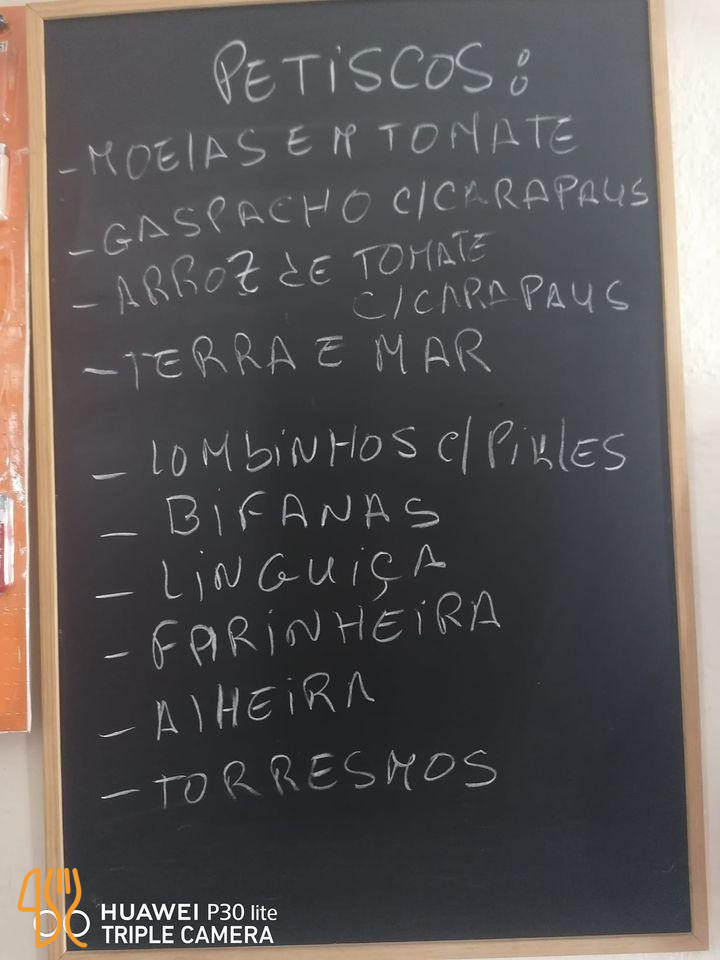 PETISCOS:
- MOELAS EM TOMATE
- GASPACHO C/CARAPAUS
- ARROZ DE TOMATE
C/CARAPAUS
- TERRA E MAR
- LOMBINHOS C/PIKLES
- BIFANAS
- LINGUIÇA
- FARINHEIRA
- ALHEIRA
- TORRESMOS
HUAWEI P30 lite
TRIPLE CAMERA